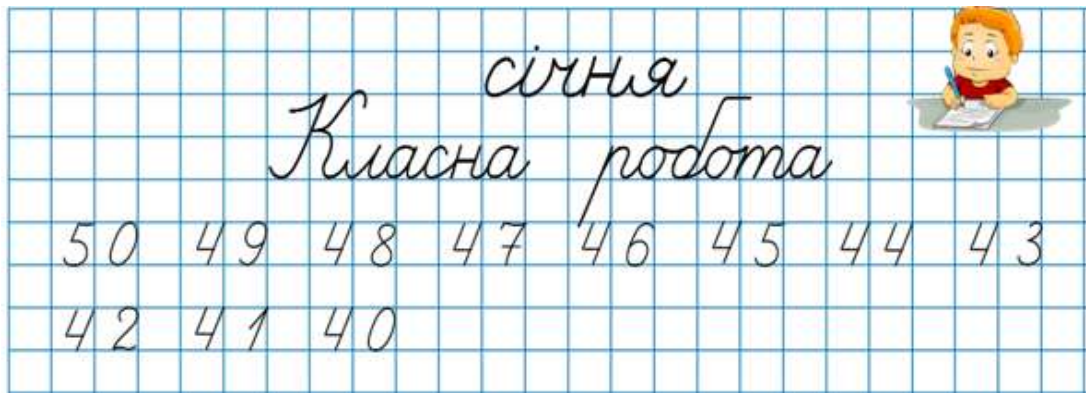 січня
Класна робота
50 49 48 47 46 45 44 43
42 41 40